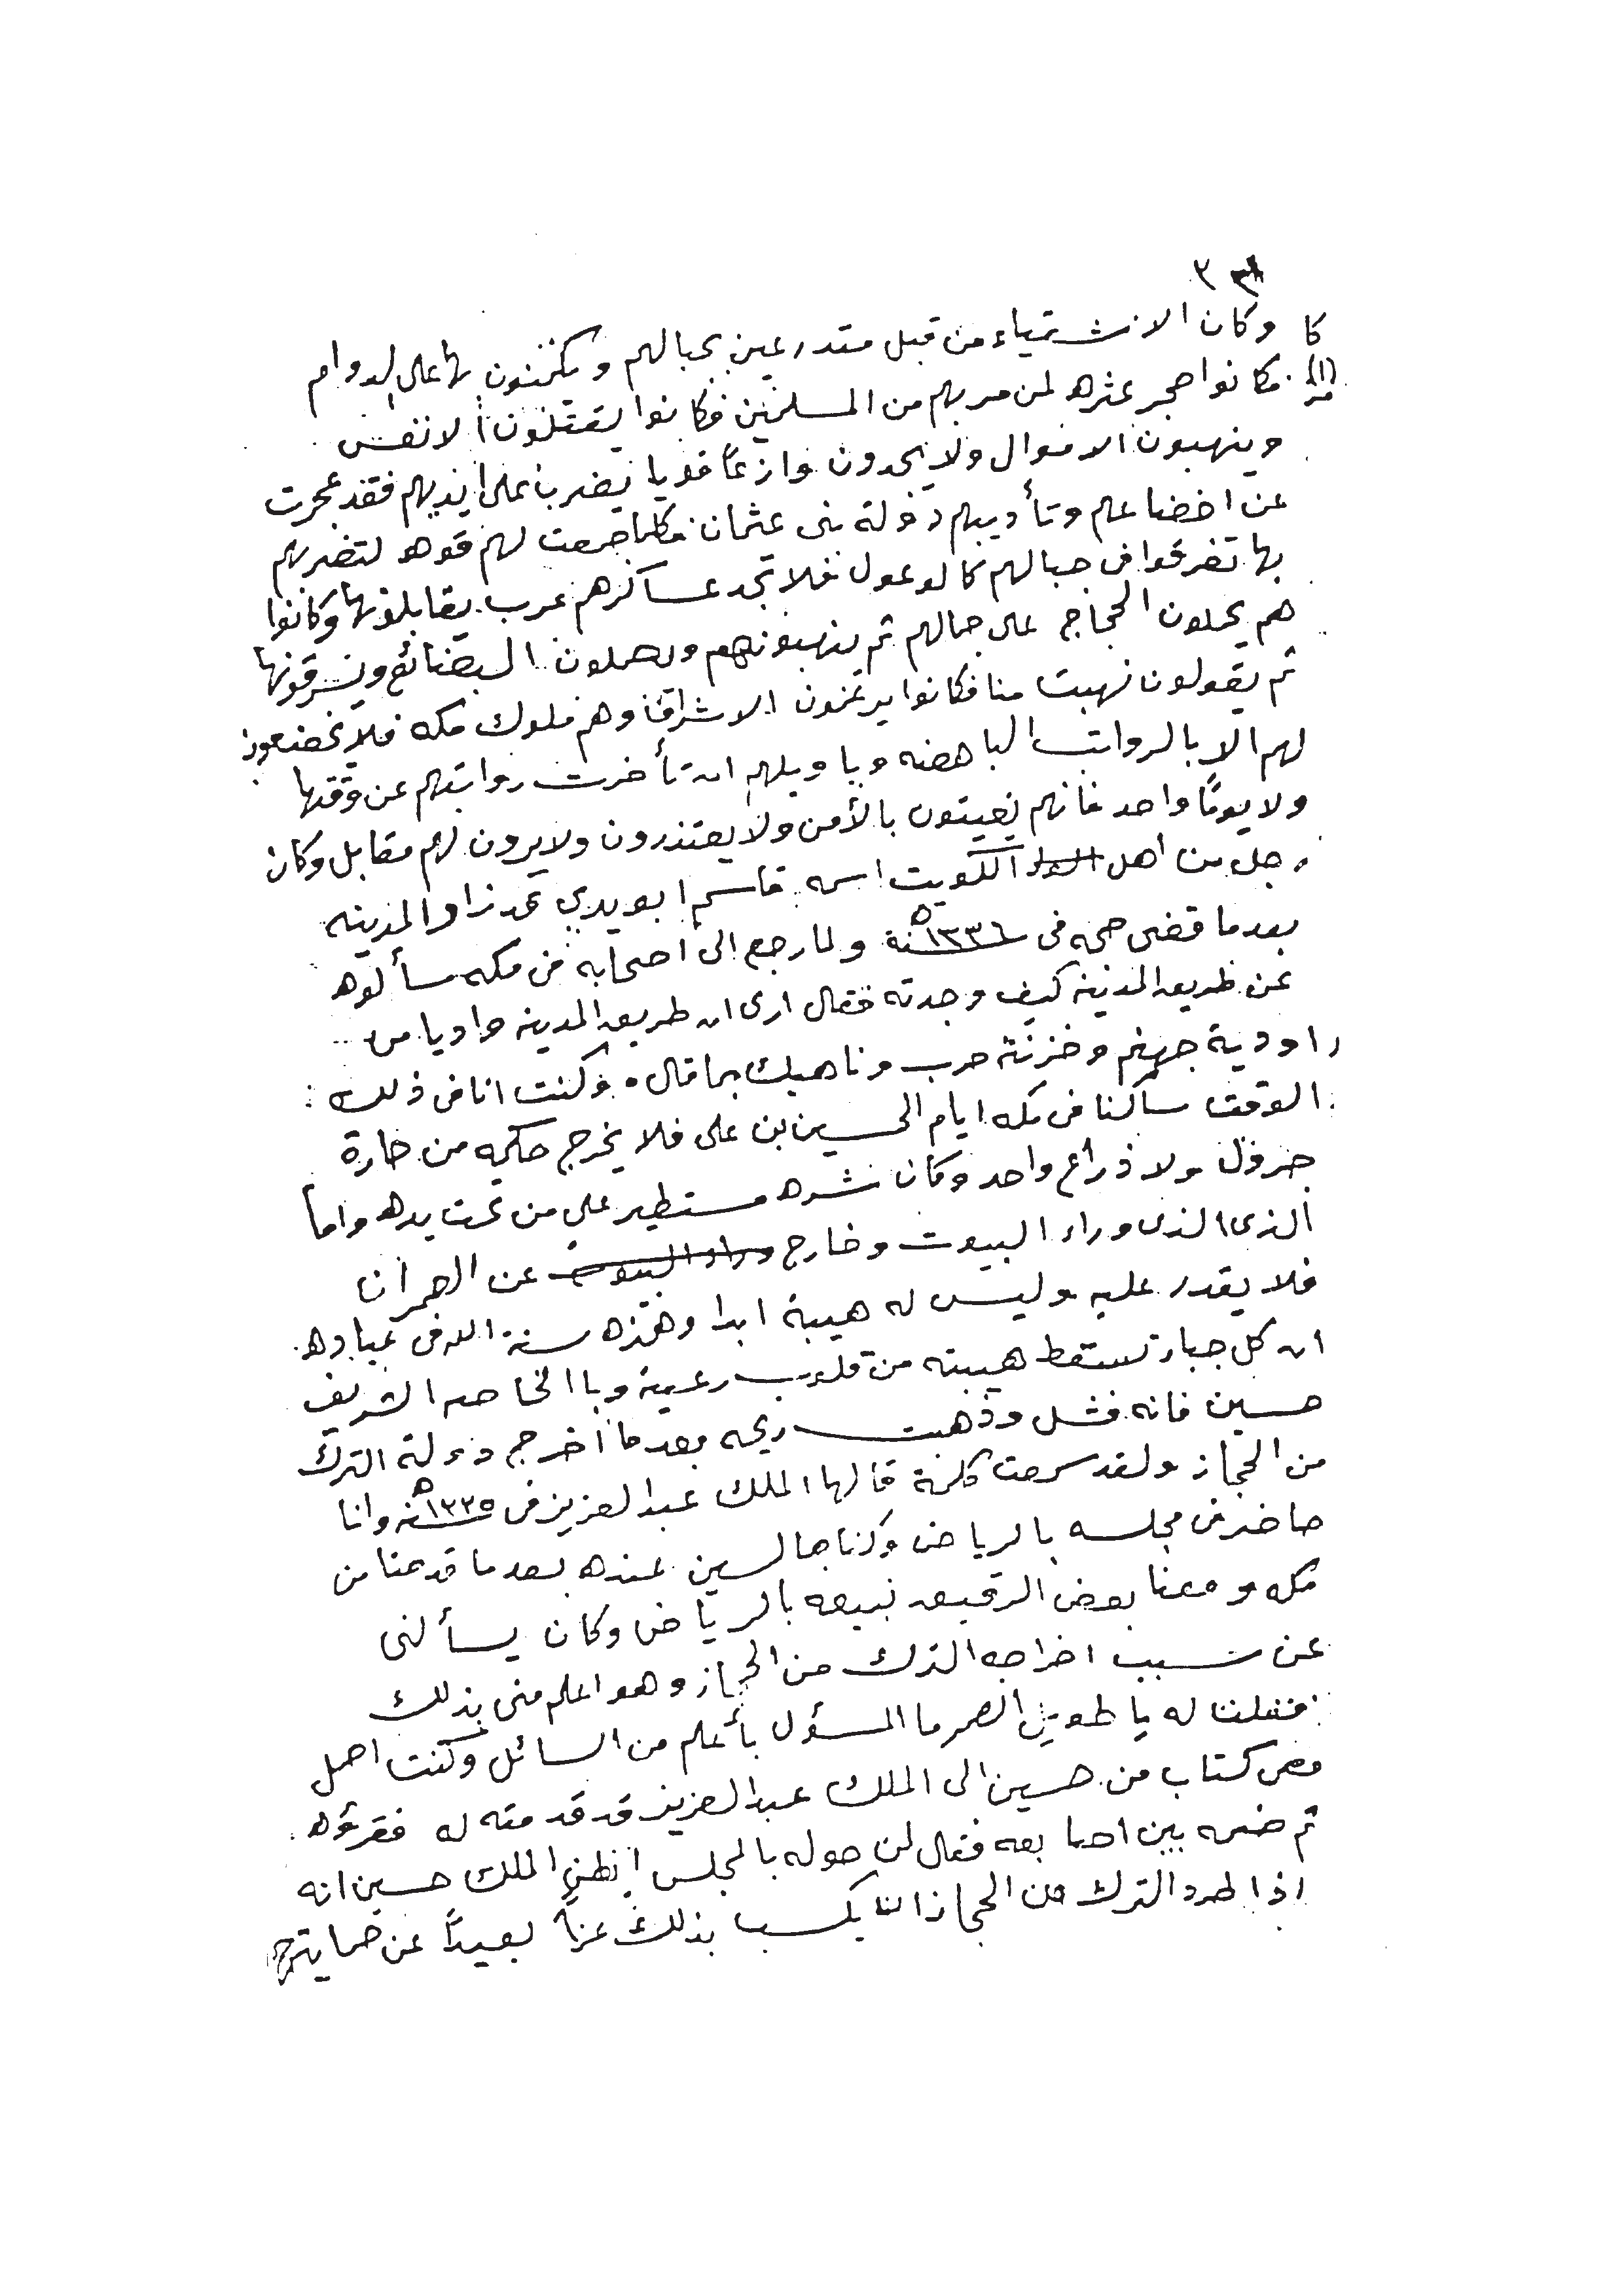 ٣٢
كا وكان الاشقياء من قبل متدرعين بجبالهم ومكمنون بها على الدوام
(١) فكانوا حجر عثره لمن مر بهم من المسلمين فكانوا يقتلون الانفس
وينهبون الاموال ولا يجدون وازعاً قويا يضرب على ايديهم فقد عجزت
عن اخضاعهم وتأديبهم دولة بنى عثمان فكلما جردت لهم قوه لتضربهم
بها تفرقوا فى جبالهم كالوعول فلا تجد عساكرهم عرب يقابلونها وكانوا
هم يحملون الحجاج على جمالهم ثم ينهبونهم ويحملون البضائع ويسرقونها
ثم يقولون نهبت منا فكانوا يرغمون الاشراف وهم ملوك مكه فلا يخضعون
لهم الا بالرواتب الباهضه ويا ويلهم ان تأخرت رواتبهم عن وقتها
ولا يومًا واحد فانهم يعيثون بالأمن ولا يعتذرون ولا يرون لهم مقابل وكان
رجل من أهل الكويت اسمه قاسم ابو يدي قد زار المدينه
بعد ما قضى حجه فى سنة ١٣٣٦ه ولما رجع الى اصحابه فى مكه سألوه
عن طريق المدينه كيف وجدته فقال ارى ان طريق المدينه واديا من
اودية جهنم وخزنته حرب وناهيك بما قال. وكنت انا فى ذلك
الوقت ساكنا فى مكه ايام الحسين بن على فلا يخرج حكمه من حارة
جرول ولا ذراع واحد وكان شره مستطير على من تحت يده واما
الذى الذى وراء البيوت وخارج عن العمران
فلا يقدر عليه وليس له هيبة ابدا وهذه سنة الله فى عباده
ان كل جبار تسقط هيبته من قلوب رعيته وبا الخاصه الشريف
حسين فانه فشل وذهبت ريحه بعد ما أخرج دولة الترك
من الحجاز ولقد سمعت كلمة قالها الملك عبد العزيز فى سنة ١٣٣٥ه وانا
حاضر فى مجلسه بالرياض وكنا جالسين عنده بعد ما قدمنا من
مكه ومعنا بعض الرقيق نبيعه بالرياض وكان يسألنى
عن سبب اخراجه الترك من الحجاز وهو اعلم منى بذلك
فقلت له يا طويل العمر ما المسؤل بأعلم من السائل وكنت احمل
معى كتاب من حسين الى الملك عبد العزيز قد قدمته له فقرؤه
ثم ضمه بين اصابعه فقال لمن حوله بالمجلس ايظن الملك حسين انه
اذا طرد الترك من الحجاز انه يكسب بذلك عزاً بعيداً عن ضما يترجا